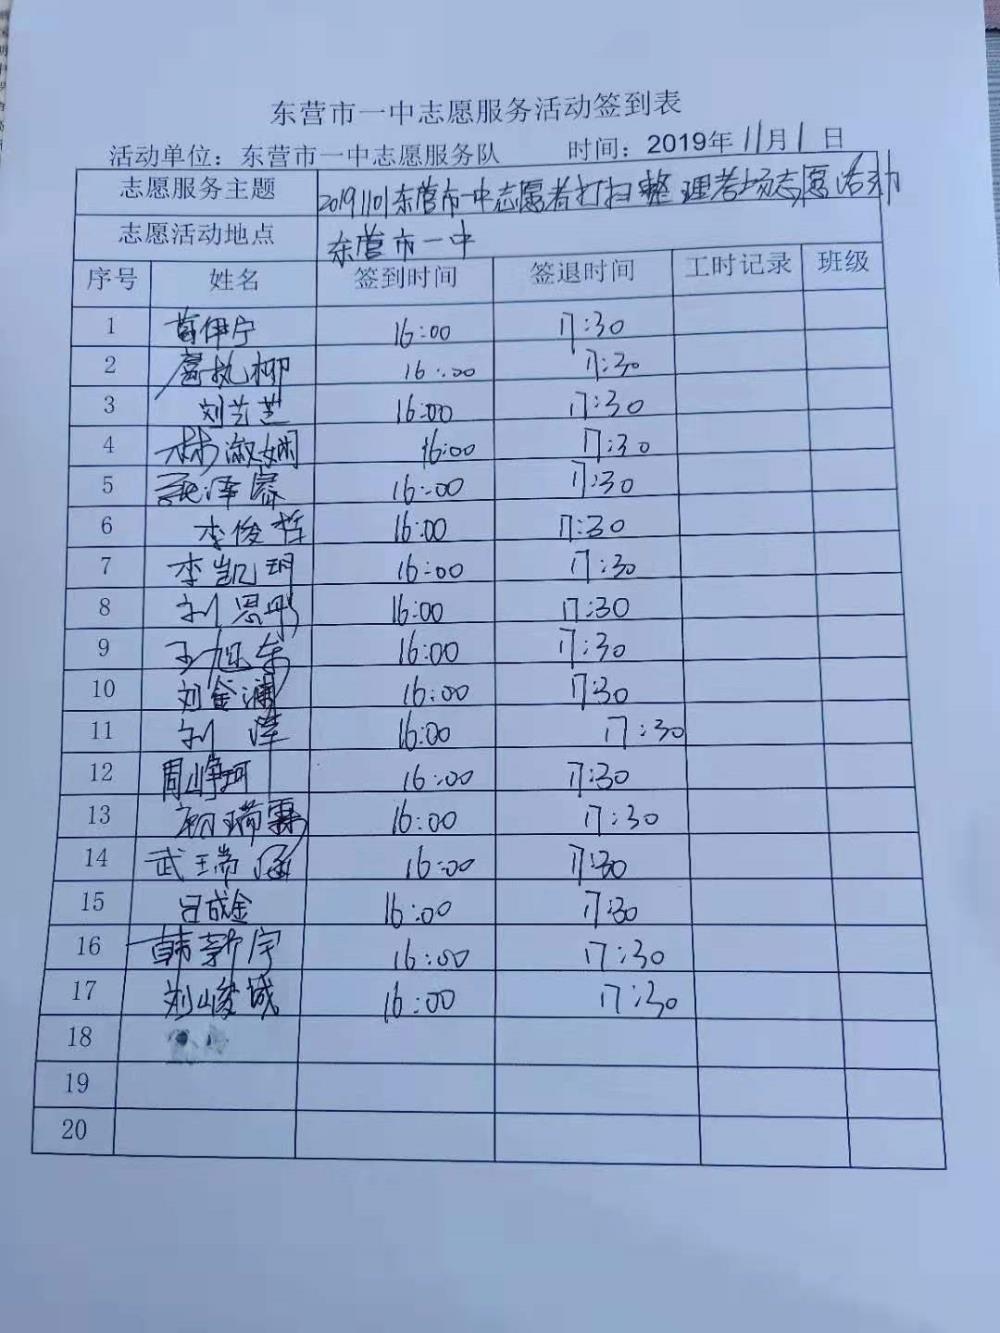 东营市一中志愿服务活动签到表
活动单位：东营市一中志愿服务队 时间：2019年11月1日
志愿服务主题 20191101东营市一中志愿者打扫整理考场志愿活动
志愿活动地点 东营市一中
序号 姓名 签到时间 签退时间 工时记录 班级
1 苟伊宁 16:00 17:30
2 16:00 17:30
3 刘艺芝 16:00 17:30
4 林淑娴 16:00 17:30
5 泽睿 16:00 17:30
6 李俊哲 16:00 17:30
7 李凯玥 16:00 17:30
8 刘恩彤 16:00 17:30
9 王旭东 16:00 17:30
10 刘金澜 16:00 17:30
11 刘萍 16:00 17:30
12 周峥珂 16:00 17:30
13 瑞霖 16:00 17:30
14 武瑞涵 16:00 17:30
15 吕成金 16:00 17:30
16 韩新宇 16:00 17:30
17 刘峻城 16:00 17:30
18
19
20